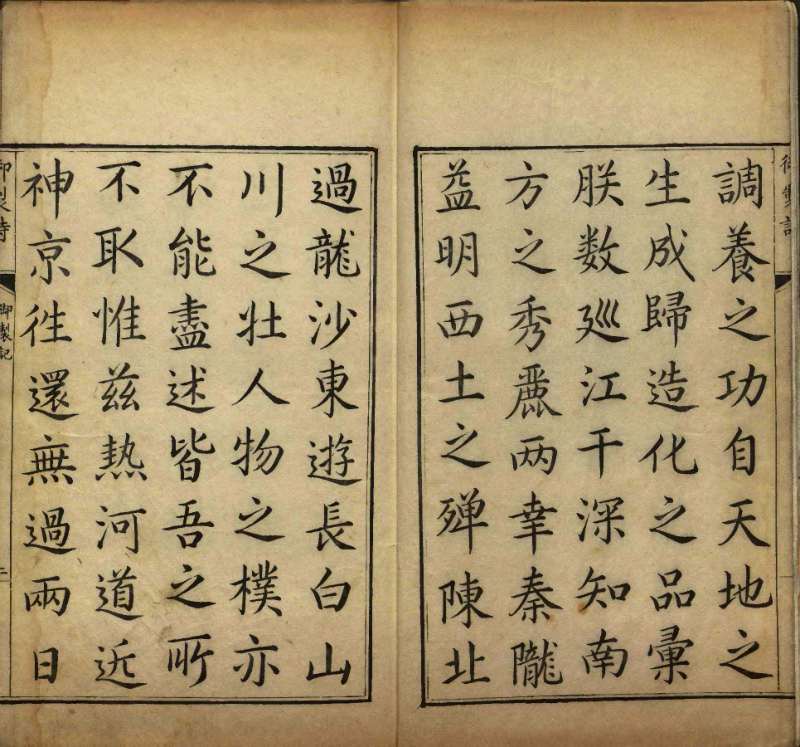 調養之功自天地之
生成歸造化之品彚
朕数廵江干深知南
方之秀麗两幸秦隴
益明西土之殫陳北
過龍沙東遊長白山
川之壯人物之樸亦
不能盡述皆吾之所
不取惟兹热河道近
神京往還無過兩日
御製詩
御製記